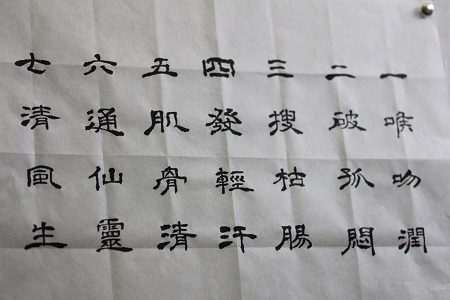 一喉吻潤
二破孤悶
三搜枯腸
四發輕汗
五肌骨清
六通仙靈
七清風生